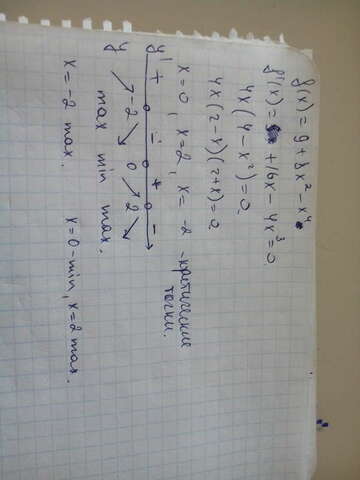 f(x) = 9 + 8x² - x⁴
f'(x) = + 16x - 4x³ = 0
4x(4 - x²) = 0
4x(2 - x)(2 + x) = 0
x = 0, x = 2, x = -2 - критические точки.
y' + - + -
y ↗ -2 ↘ 0 ↗ 2 ↘
max min max.
x = -2 max. x = 0 - min, x = 2 max.